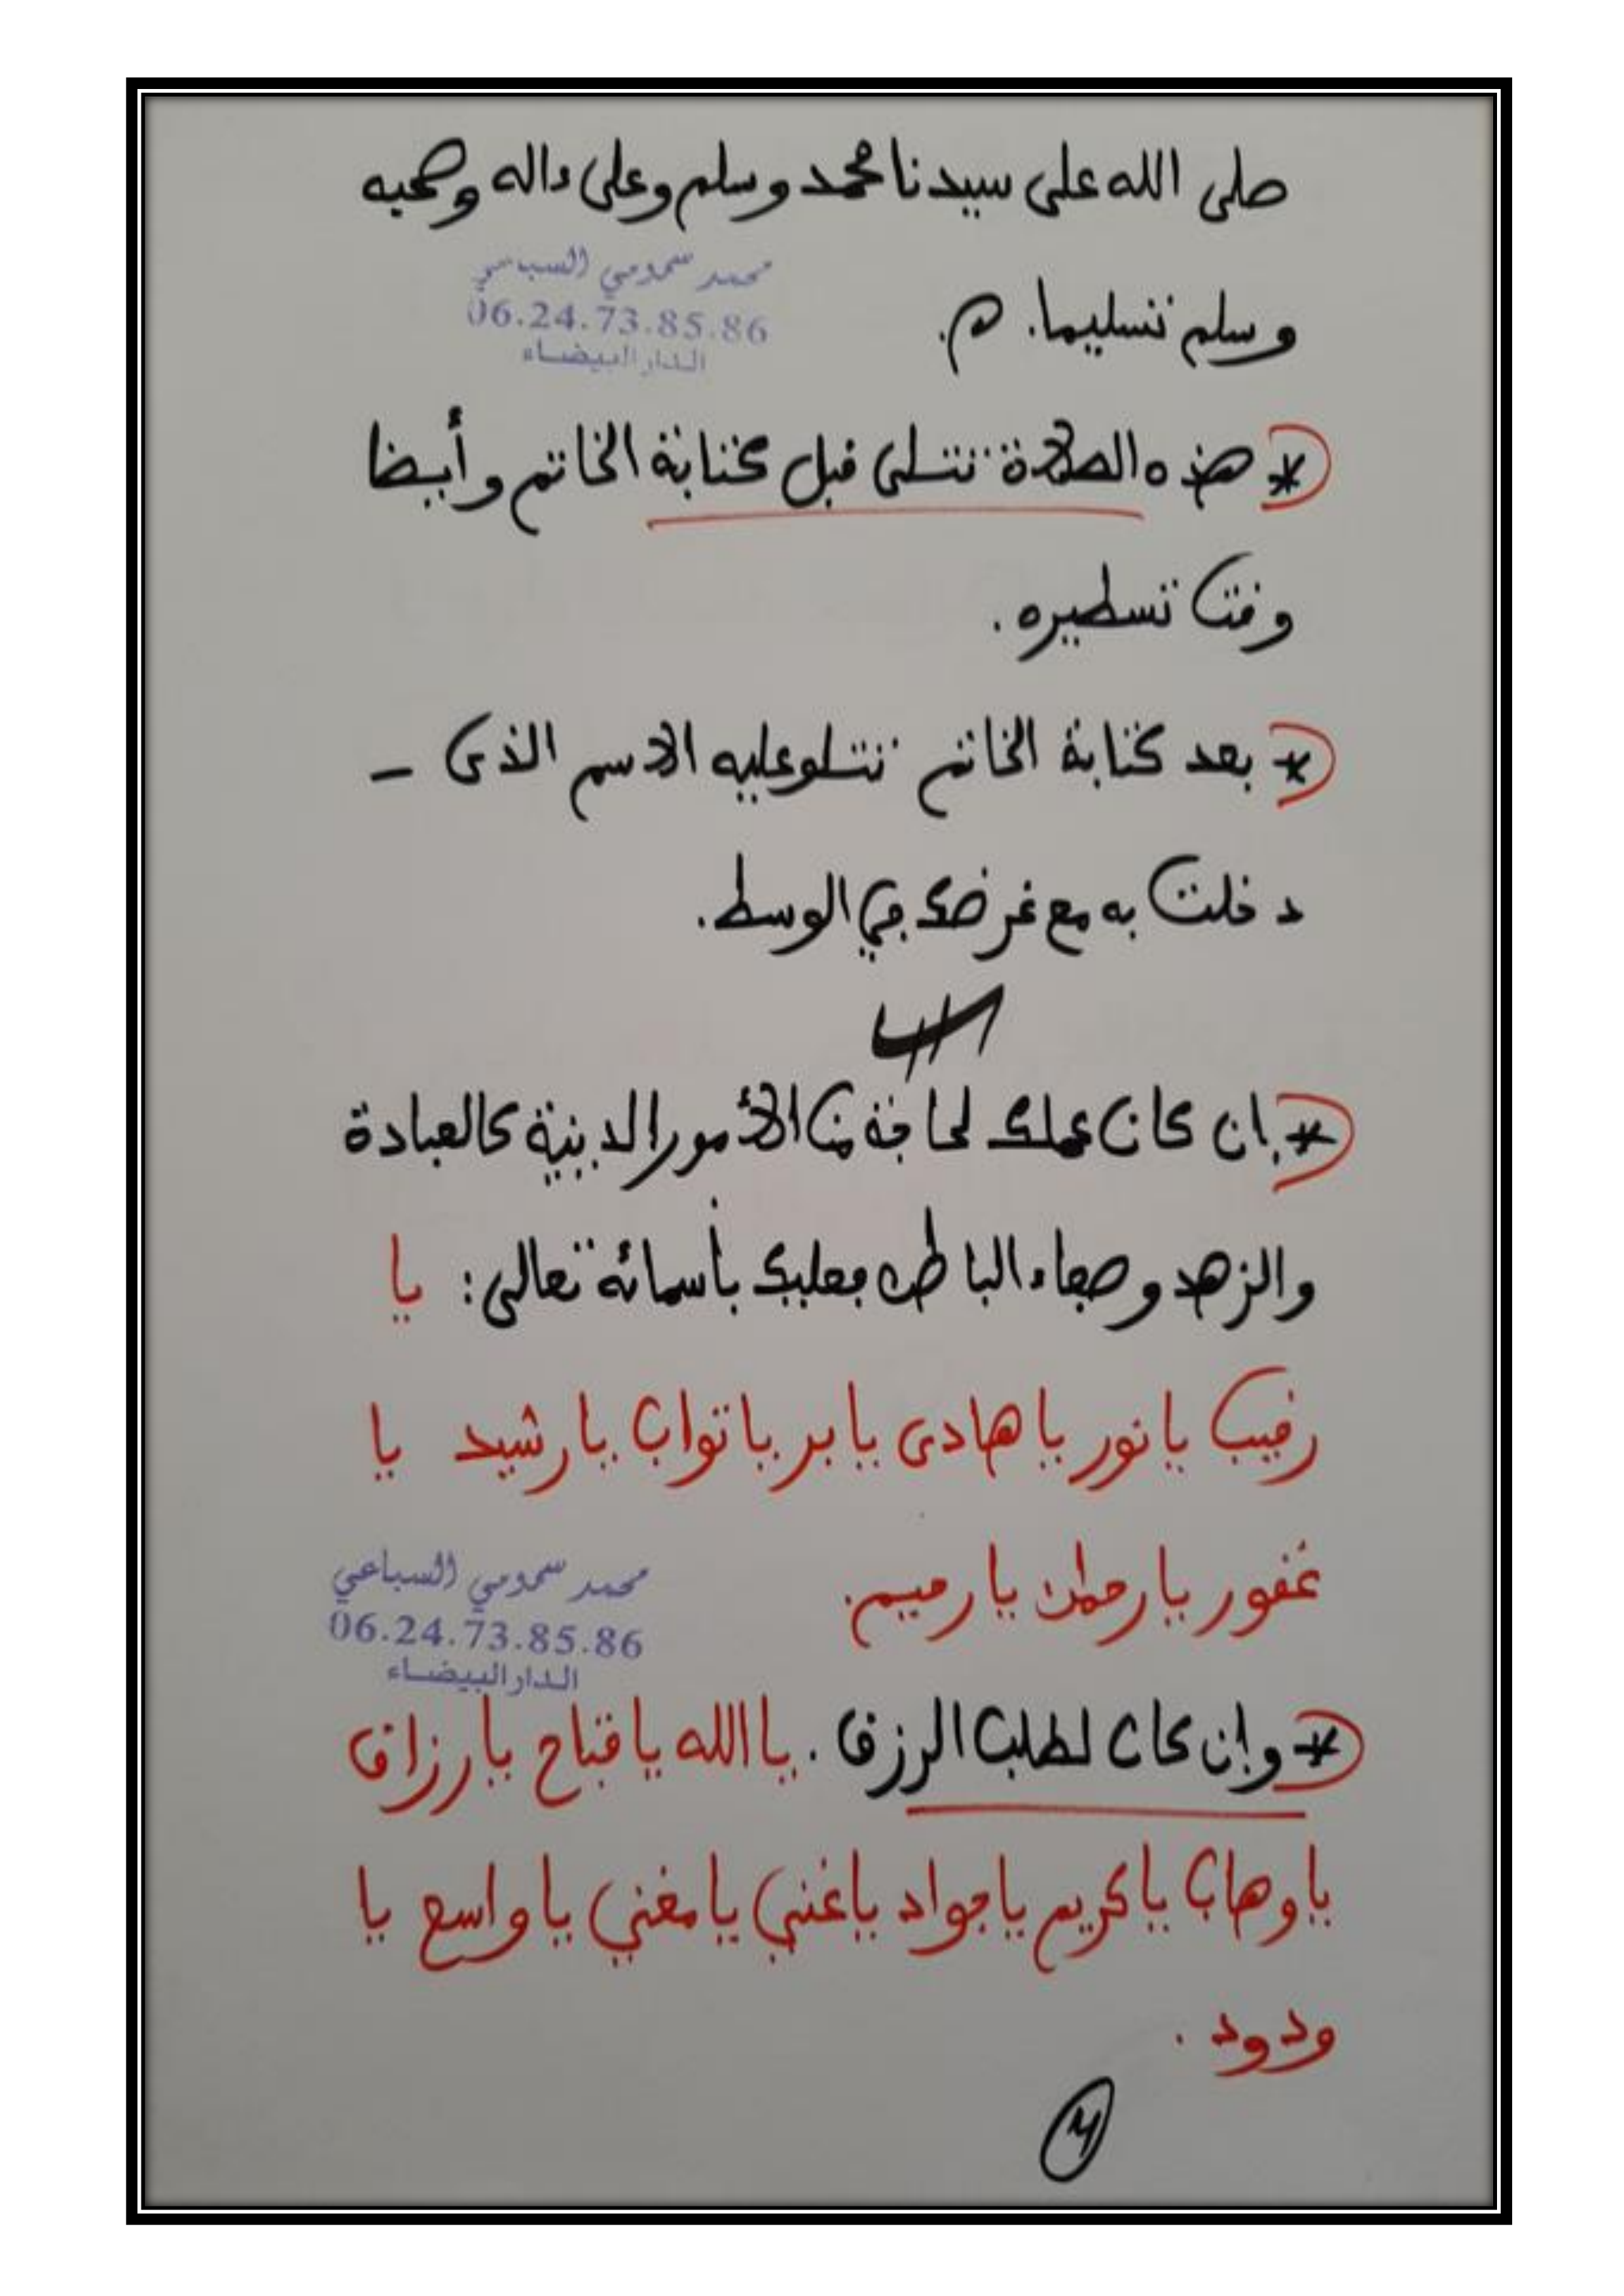 صلى الله على سيدنا محمد وسلم وعلى ءاله وصحبه
محمد سمومي السباعي
06.24.73.85.86
الدار البيضاء
وسلم تسليما. م.
* هذه الصلاة تتلى قبل كتابة الخاتم وأيضا
وقت تسطيره.
* بعد كتابة الخاتم تتلو عليه الاسم الذى –
دخلت به مع غرضك في الوسط.
* إن كان عملك لحاجة من الأمور الدينية كالعبادة
والزهد وصفاء الباطن فعليك بأسمائه تعالى: يا
رقيب يا نور يا هادى يا بر يا تواب يا رشيد يا
غفور يا رحمان يا رحيم.
محمد سمومي السباعي
06.24.73.85.86
الدار البيضاء
* وإن كان لطلب الرزق. يا الله يا فتاح يا رزاق
يا وهاب يا كريم يا جواد يا غني يا مغني يا واسع يا
ودود.